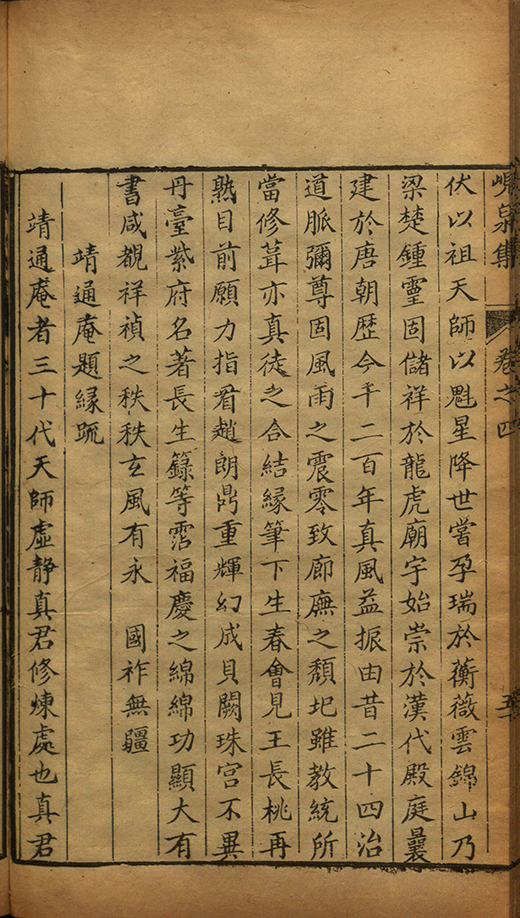 峴泉集　卷之四
伏以祖天師以魁星降世嘗孕瑞於蘅薇雲錦山乃
梁楚鍾靈固儲祥於龍虎廟宇始崇於漢代殿庭曩
建於唐朝歷今千二百年真風益振由昔二十四治
道脈彌尊固風雨之震零致廊廡之頹圮雖教統所
當修葺亦真徒之合結緣筆下生春會見王長桃再
熟目前願力指看趙朗鼎重輝幻成貝闕珠宮不異
丹臺紫府名著長生籙等霑福慶之綿綿功顯大有
書咸覩祥禎之秩秩玄風有永　國祚無疆
靖通庵題緣疏
靖通庵者三十代天師虛靜真君修煉處也真君